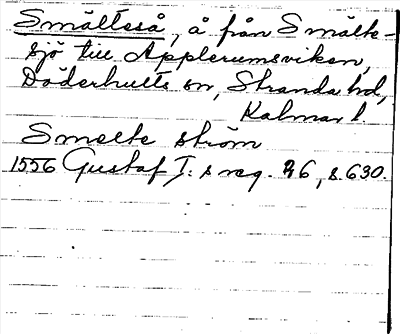 Smälteå, å från Smälte-
sjö till Applerumsviken,
Döderhults sn, Stranda hd,
Kalmar l.
Smelte ström
1556 Gustaf I:s reg. 26, s. 630.